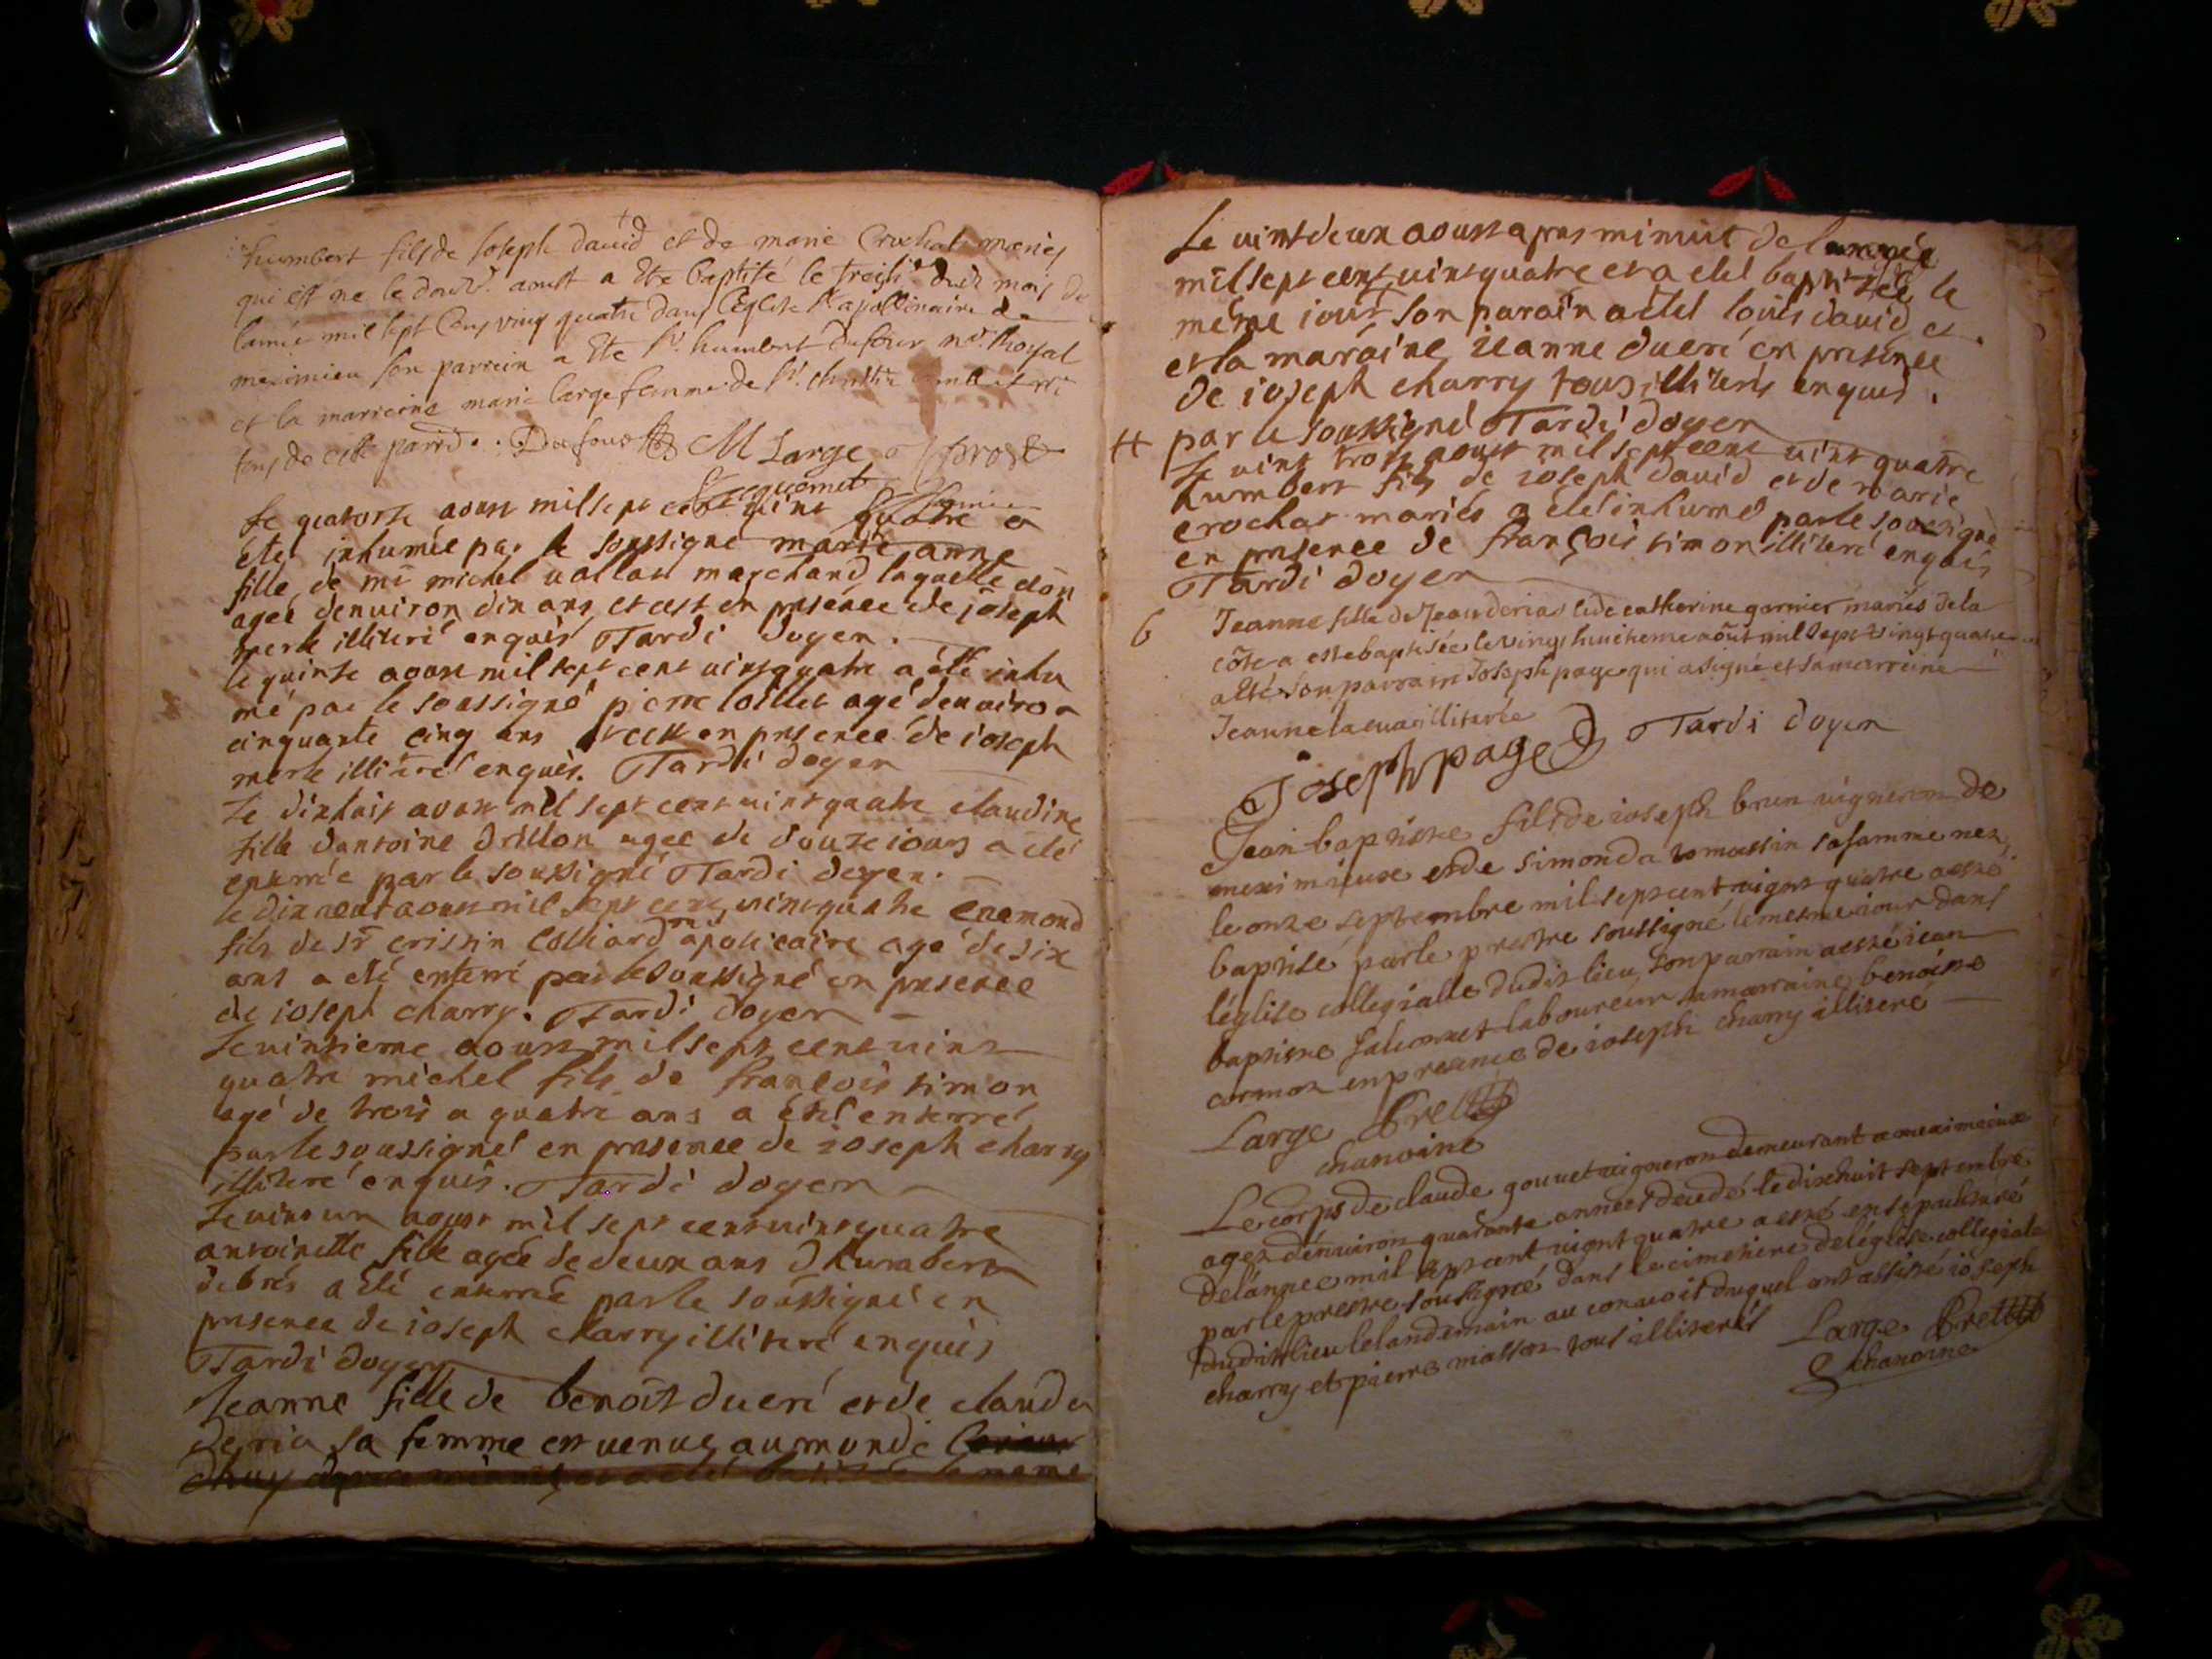 humbert fils de Joseph david et de marie Crochat mariés
qui est ne le douz.e aoust a Ete baptisé le treisi.e dud mois de
lannée mil sept Cens ving quatre dans l'Eglise St apollinaire de
meximieu son parrein a Ete Sr. humbert dufour nore. Royal
et la marreine marie large femme de Sr.
tous de cette parr.e. Dufour M Large prost
Jacquemet
Le quatorze aoust mil sept cent vint quatre a
étéé inhumée par le soussigné marie anne
fille de mr michel vallan marchand laquelle etoit
agée denviron dix ans et cest en presence de joseph
merle illiteré enquis Tardi doyen.
le quinze aoust mil sept cent vint quatre a été inhu
mé par le soussigné pierre loillet agé denviron
cinquante cinq ans et cest en presence de ioseph
merle illiteré enquis. Tardi doyen
Le dixhuit aoust mil sept cent vint quatre claudine
fille dantoine drillon agee de douze iours a été
enterrée par le soussigné Tardi doyen.
le dixneuf aoust mil sept cent vint quatre enemond
fils de sr crissin Colliard mre apoticaire agé de six
ans a été enterré par le soussigné en presence
de ioseph charry. Tardi doyen
Le vintieme aoust mil sept cent vint
quatre michel fils de françois simon
agé de trois a quatre ans a été enterré
par le soussigné en presence de ioseph charry
illiteré enquis. Tardi doyen
Le vint un aoust mil sept cent vint quatre
antoinette fille agée de deux ans dhumbert
debrés a été enterrée par le soussigné en
presence de ioseph charry illiteré enquis
Tardi doyen
Jeanne fille de benoît dueré et de clauda
Deria sa femme est venue au monde
dhuy apres minuit et a été batisée le meme
Le vint deux aoust apres minuit de lannée
mil sept cent vint quatre et a été baptizée le
même iour son parain a été louis david et
et la maraine ieanne dueré en presence
de ioseph charry tous illiterés enquis.
par le soussigné Tardi doyen
++ Le vint trois aoust mil sept cent vint quatre
humbert fils de ioseph david et de marie
crochat mariés a été inhumé par le soussigné
en presence de françois simon illiteré enquis
Tardi doyen
6 Jeanne fille de Jean deria et de catherine garnier mariés de la
côte a esté baptisée le vingt huitieme aoùt mil sept vingt quatre
a été son parrain Joseph page qui a signé et sa marreine
Jeanne illiterée
Joseph page Tardi doyen
Jean baptiste fils de ioseph brun vigneron de
meximieux et de simonda tomassin sa famme nez
le onze septembre mil sept cent vignt quatre a esté
baptisé par le prestre soussigné le mesme iour dans
léglise collegialle dudit lieu, son parrain a esté iean
baptiste Jalionnet laboureur sa marraine benoiste
cormoz en presence de ioseph charry illiteré
Large Pretre
chanoine
Le corps de claude gouvet vigneron demeurant a meximieux
agez dénviron quarante années decedé le dixhuit septembre
de lánnee mil sept cent vignt quatre a esté ensepulturé
par le prestre soussigné dans le cimetiere de léglise collegiale
dudit lieu le landemain au convoit duquel ont assisté ioseph
charry et pierre masson tous illiterés Large Pretre
chanoine